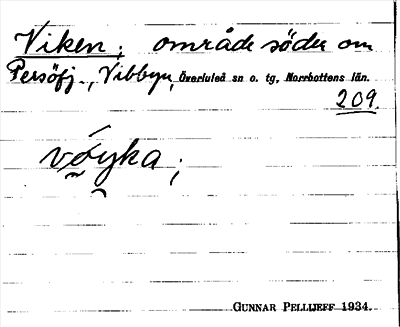 Viken; område söder om
Persöfj., Vibbyn, Överluleå sn o. tg, Norrbottens län.
209.
vóyka;
GUNNAR PELLIJEFF 1934.